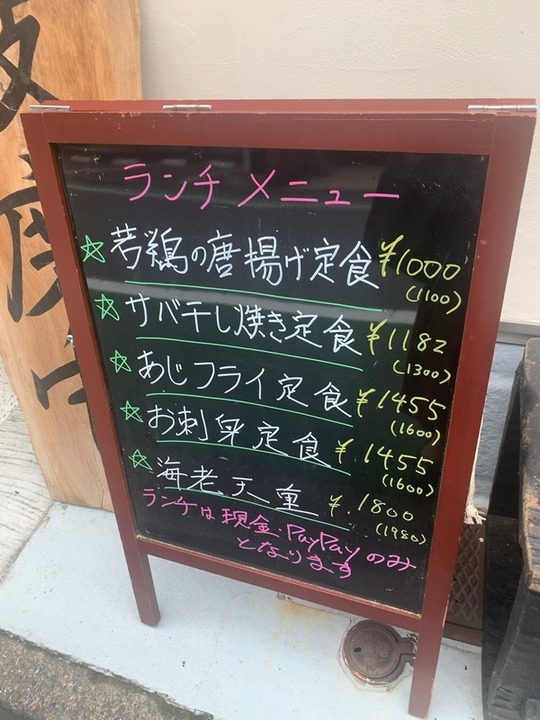 ランチメニュー
☆若鶏の唐揚げ定食 ¥1000
(1100)
☆サバ干し焼き定食 ¥1182
(1300)
☆あじフライ定食 ¥1455
(1600)
☆お刺身定食 ¥1455
(1600)
☆海老天重 ¥1800
(1980)
ランチは現金・PayPayのみ
となります